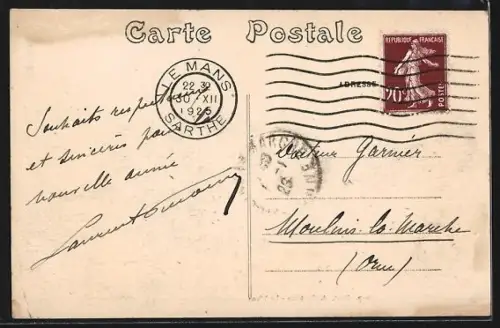 Carte Postale
LE MANS
22 32
30 - XII
1925
SARTHE
REPUBLIQUE FRANÇAISE
20c
POSTES
ADRESSE
Souhaits respectueux
et sincères pour
nouvelle année
Docteur Garnier
Moulins-la-Marche
(Orne)